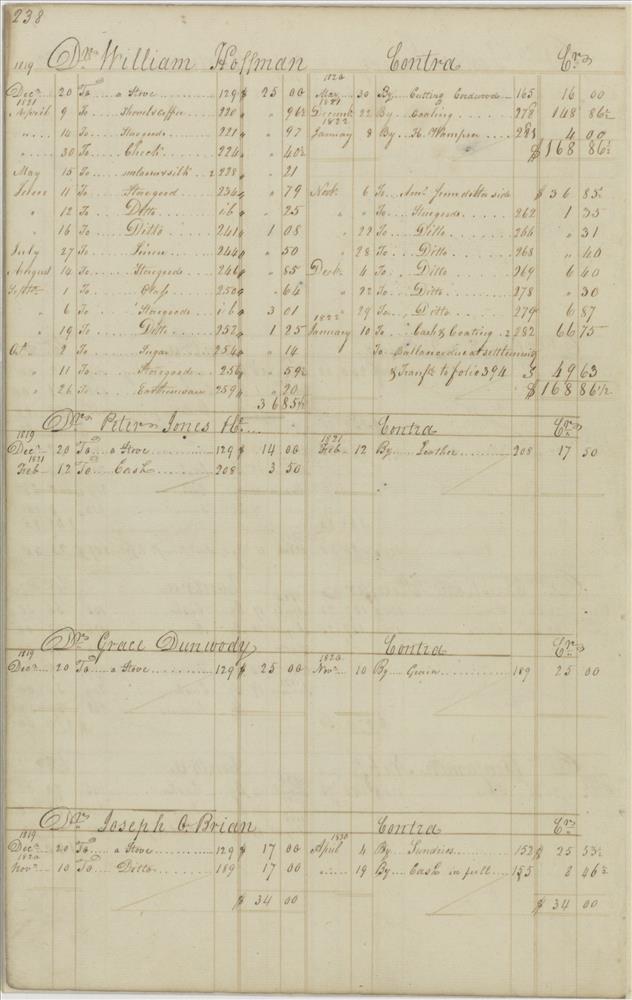 238
1819 Dr. William Hoffman Contra Cr.
Decr 20 To a Stove 129 $ 25 00
1821
April 9 To Shovel & Coffee 220 " 96½
" 14 To Storegoods 221 " 97
" 30 To Check 224 " 40½
May 15 To & silk 228 " 21
11 To Storegood 234 " 79
" 12 To Ditto ib " 25
" 16 To Ditto 241 1 08
July 27 To Linen 244 " 50
August 14 To Storegoods 246 " 85
Septr 1 To 250 " 64
" 6 To Storegoods ib 3 01
" 19 To Ditto 252 1 25
Oct 2 To Sugar 254 " 14
" 11 To Storegoods 256 " 59½
" 26 To Earthenware 259 " 20
36 85½
1820
May 30 By Cutting Cordwood 165 16 00
1821
Decemb 22 By Coaling 278 148 86½
1822
January 8 By H. Wampler 281 4 00
$ 168 86½
Novb 6 To Amt from ditto side $ 36 85½
" To Storegoods 262 1 35
" 22 To Ditto 266 " 31
" 28 To Ditto 268 " 40
Decb 4 To Ditto 269 6 40
" 22 To Ditto 278 " 30
" 29 To Ditto 279 6 87
1822
January 10 To Cash & Coating 282 66 75
To Ballance due at settlement
& Transfd to folio 394 $ 49 63
$ 168 86½
Dr. Peter Jones Contra Cr.
1819
Decr 20 To a Stove 129 $ 14 00
1821
Feb 12 To Cash 208 3 50
1821
Feb 12 By Leather 208 17 50
Dr. Grace Dunwody Contra Cr.
1819
Decr 20 To a Stove 129 $ 25 00
1820
Novr 10 By Grain 189 25 00
Dr. Joseph O Brian Contra Cr.
1819
Decr 20 To a Stove 129 $ 17 00
1820
Novr 10 To Ditto 189 17 00
$ 34 00
April 4 By Sundries 152 $ 25 53½
" 19 By Cash in full 155 8 46½
$ 34 00